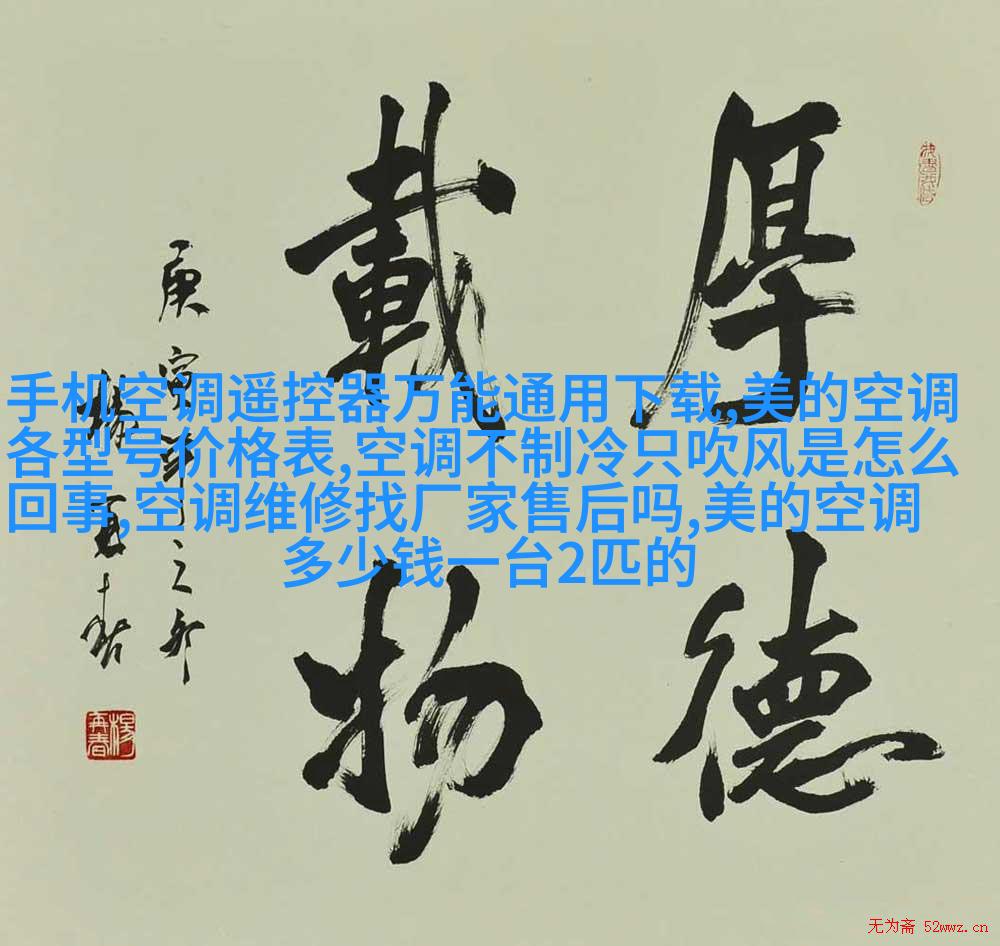 厚德
載物
庚寅年之卯
楊再春
楊再春
手机空调遥控器万能通用下载,美的空调
各型号价格表,空调不制冷只吹风是怎么
回事,空调维修找厂家售后吗,美的空调
多少钱一台2匹的
无为斋 52wwz.cn